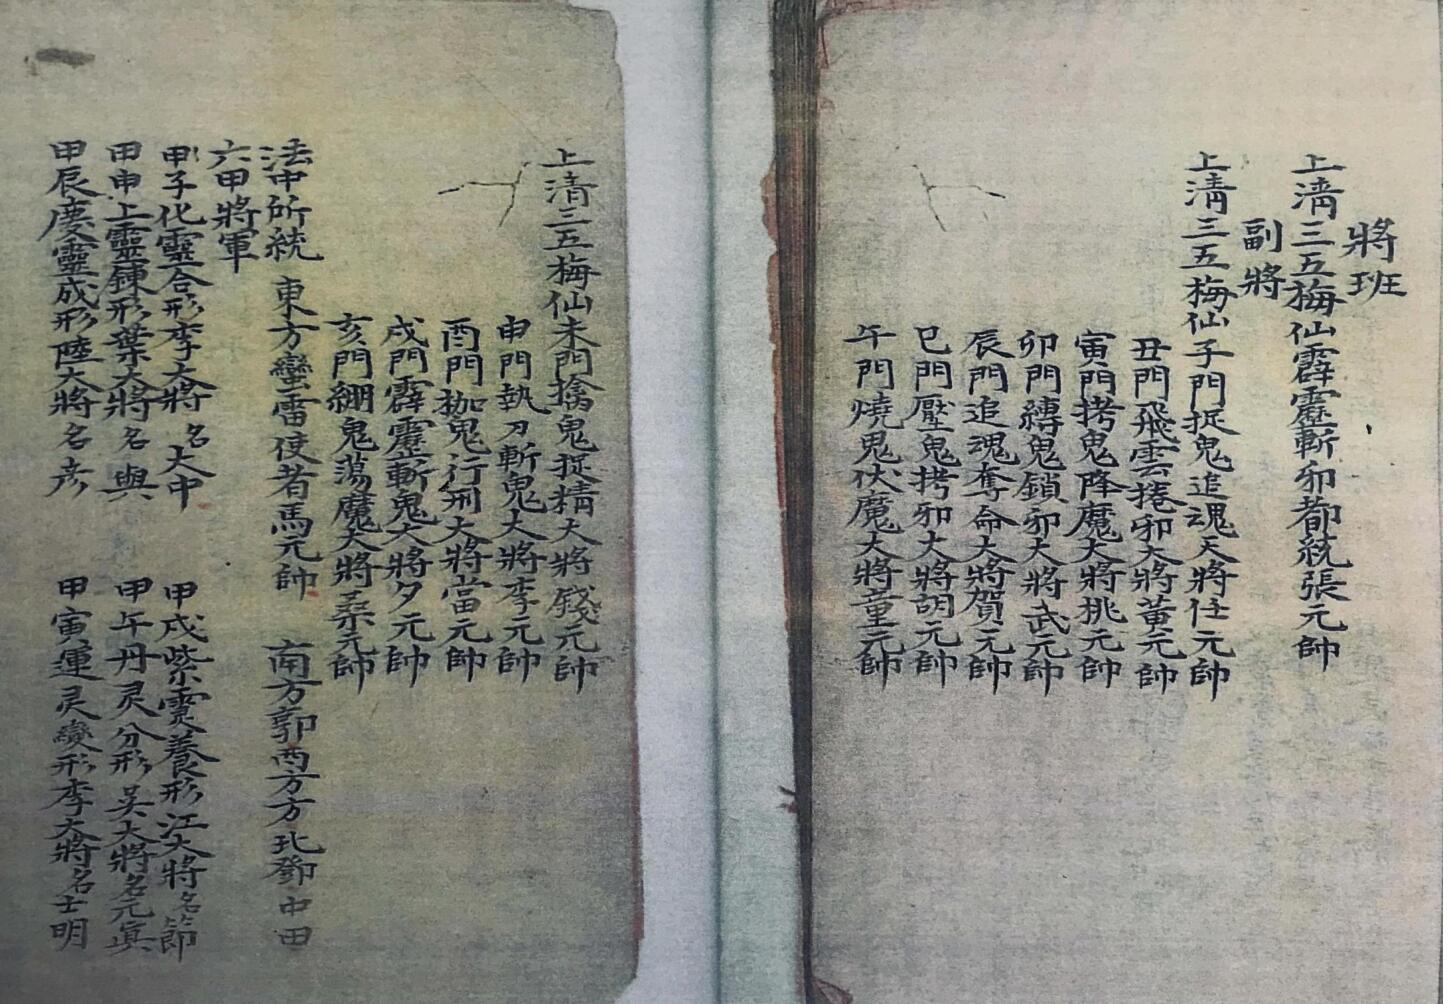 將班
上清三五梅仙霹靂斬卯都統張元帥
副將
上清三五梅仙子門捉鬼追魂天將任元帥
丑門飛雲捲邪大將黃元帥
寅門拷鬼降魔大將桃元帥
卯門縛鬼鎖邪大將武元帥
辰門追魂奪命大將賀元帥
巳門壓鬼拷邪大將胡元帥
午門燒鬼伏魔大將董元帥
上清三五梅仙未門擒鬼捉精大將錢元帥
申門執刀斬鬼大將李元帥
酉門枷鬼行刑大將當元帥
戌門霹靂斬鬼大將夕元帥
亥門綳鬼蕩魔大將桑元帥
法中所統 東方蠻雷使者馬元帥 南方郭西方方北鄧中田
六甲將軍
甲子化靈合形李大將名大中 甲戌紫靈養形江大將名節
甲申上靈鍊形葉大將名與 甲午丹灵分形吴大將名元真
甲辰慶靈成形陸大將名彦 甲寅運灵變形李大將名士明